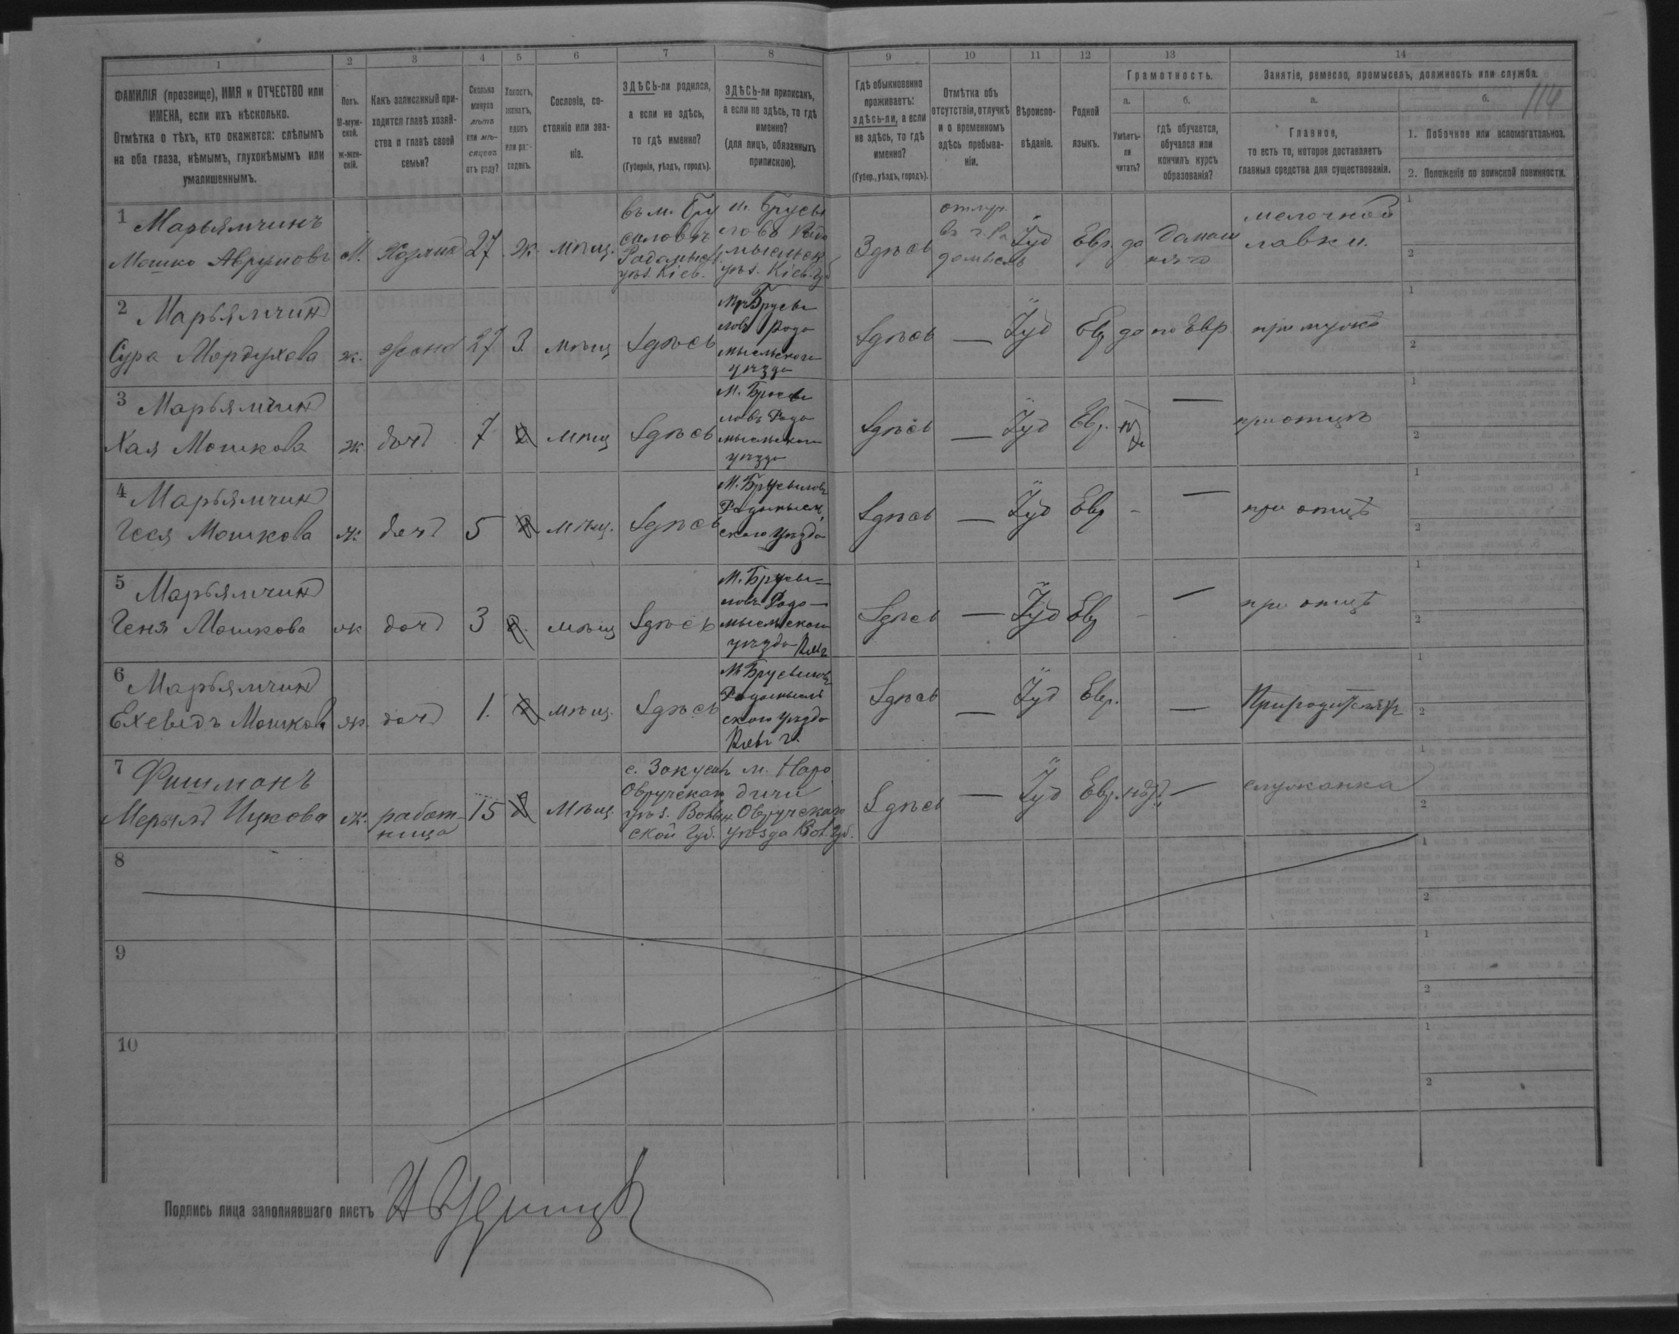 1 2 3 4 5 6 7 8 9 10 11 12 13 14
ФАМИЛІЯ (прозвище), ИМЯ и ОТЧЕСТВО или
ИМЕНА, если ихъ нѣсколько.
Отмѣтка о тѣхъ, кто окажется: слѣпымъ
на оба глаза, нѣмымъ, глухонѣмымъ или
умалишеннымъ.
Полъ.
М-муж-
ской.
ж-жен-
скій.
Какъ записанный при-
ходится главѣ хозяй-
ства и главѣ своей
семьи?
Сколько
минуло
лѣтъ
или мѣ-
сяцевъ
отъ роду?
Холостъ,
женатъ,
вдовъ
или раз-
веденъ.
Сословіе, со-
стояніе или зва-
ніе.
ЗДѢСЬ-ли родился,
а если не здѣсь,
то гдѣ именно?
(Губернія, уѣздъ, городъ).
ЗДѢСЬ-ли приписанъ,
а если не здѣсь, то гдѣ
именно?
(для лицъ, обязанныхъ
припискою).
Гдѣ обыкновенно
проживаетъ:
здѣсь-ли, а если
не здѣсь, то гдѣ
именно?
(Губер., уѣздъ, городъ).
Отмѣтка объ
отсутствіи, отлучкѣ
и о временномъ
здѣсь пребыва-
ніи.
Вѣроиспо-
вѣданіе.
Родной
языкъ.
Грамотность.
а.
Умѣетъ-
ли
читать?
б.
гдѣ обучается,
обучался или
кончилъ курсъ
образованія?
Занятіе, ремесло, промыселъ, должность или служба.
а.
Главное,
то есть то, которое доставляетъ
главныя средства для существованія.
б.
114
1. Побочное или вспомогательное.
2. Положеніе по воинской повинности.
1 Марьямчинъ
Мошко Авруновъ М. Хозяинъ 27 ж. мѣщ.
въ м. Бру
силовъ
Радомысл.
уѣз. Кіев.
м. Брусы
ловъ Радо
мысльск
уѣз. Кіев.
Здѣсь
Іуд Евр. да
мелочной
лавки
2 Марьямчин
Сура Мордухова ж. жена 27 З. мѣщ Здѣсь
м. Брусы
ловъ Радо
мысльскаго
уѣзда
Здѣсь — Іуд Евр да по Евр. при мужѣ
3 Марьямчин
Хая Мошкова ж. дочь 7 мѣщ Здѣсь
М. Брусы
ловъ Радо
мысльскаго
уѣзда
Здѣсь — Іуд Евр. — при отцѣ
4 Марьямчин
Геся Мошкова ж. дочь 5 мѣщ. Здѣсь
М. Брусыловъ
Радомысл
скаго уѣзда
Здѣсь — Іуд Евр - — при отцѣ
5 Марьямчин
Геня Мошкова ж дочь 3 мѣщ Здѣсь
М. Брусы-
ловъ Радо-
мысльскаго
уѣзда
Здѣсь — Іуд Евр - — при отцѣ
6 Марьямчин
Ехеведъ Мошкова ж. дочь 1. мѣщ. Здѣсь
М. Брусыловъ
Радомысль
скаго уѣзда
Кіев г.
Здѣсь — Іуд Евр. — При родителях
7 Фишманъ
Мерыль Ицкова ж. работ-
ница
15 мѣщ.
Овручскаго
уѣз. Волын
ской Губ.
м. Наро
дичи
Овручскаго
уѣзда Вол. Губ.
Здѣсь — Іуд Евр. — служанка
8
9
10
Подпись лица заполнявшаго листъ